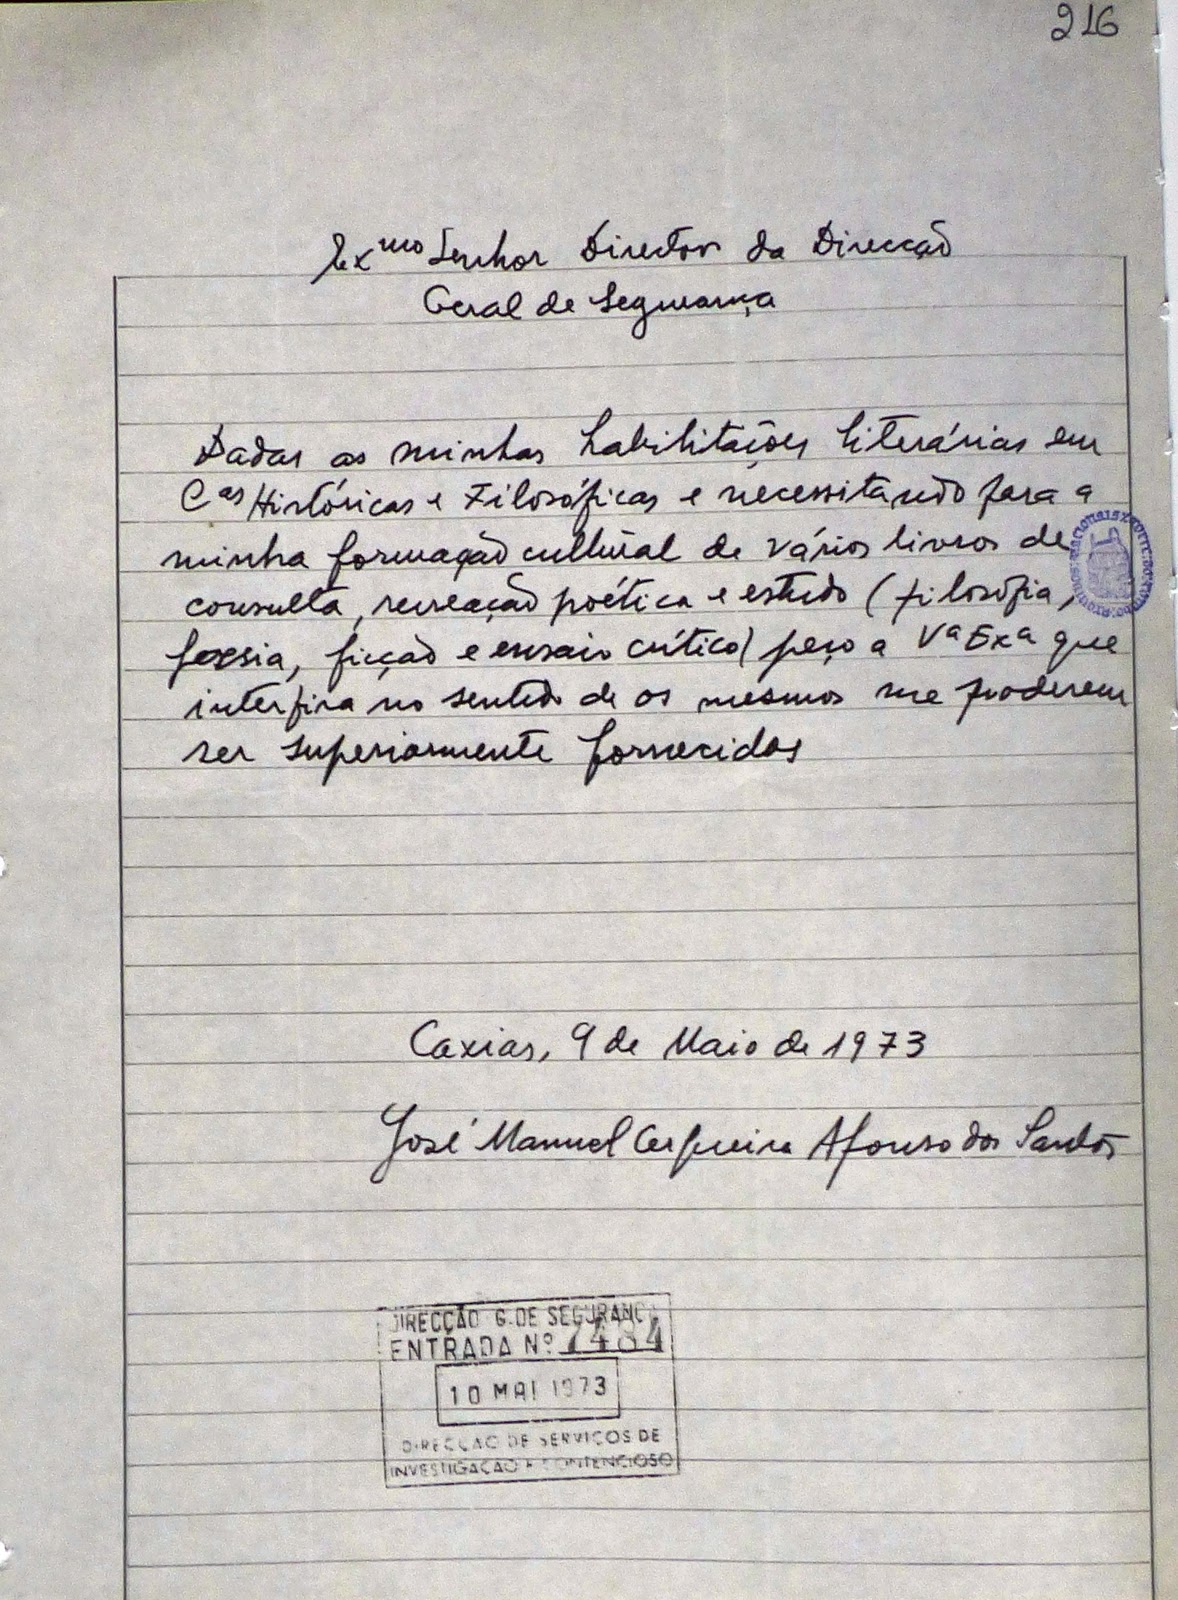 216
Exmo Senhor Director da Direcção
Geral de Segurança
Dadas as minhas habilitações literárias em
Cas Históricas e Filosóficas e necessitando para a
minha formação cultural de vários livros de
consulta, recreação poética e estudo (filosofia,
poesia, ficção e ensaio crítico) peço a Vª Exª que
interfira no sentido de os mesmos me poderem
ser superiormente fornecidos
Caxias, 9 de Maio de 1973
José Manuel Cerqueira Afonso dos Santos
DIRECÇÃO G. DE SEGURANÇA
ENTRADA Nº 7484
10 MAI 1973
DIRECÇÃO DE SERVIÇOS DE
INVESTIGAÇÃO E CONTENCIOSO